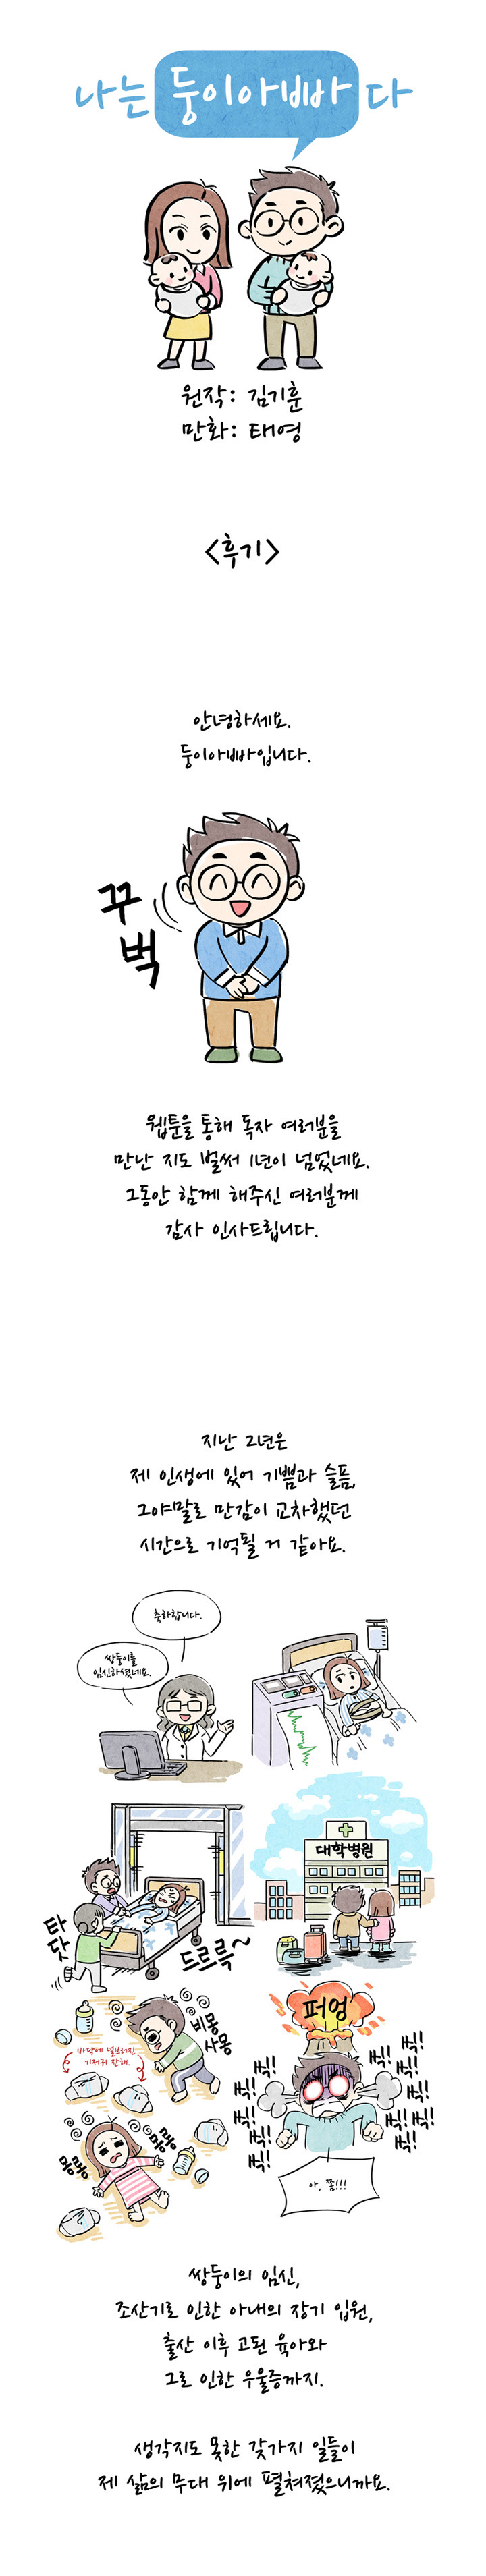 나는 둥이아빠다
원작: 김기훈
만화: 태영
<후기>
안녕하세요.
둥이아빠입니다.
꾸
벅
웹툰을 통해 독자 여러분을
만난 지도 벌써 1년이 넘었네요.
그동안 함께 해주신 여러분께
감사 인사드립니다.
지난 2년은
제 인생에 있어 기쁨과 슬픔,
그야말로 만감이 교차했던
시간으로 기억될 거 같아요.
축하합니다.
쌍둥이를
임신하셨네요.
타
닷
드르륵~
대학병원
비몽
사몽
바닥에 널브러진
기저귀 잔해.
퍼엉
아, 쫌!!!
쌍둥이의 임신,
조산기로 인한 아내의 장기 입원,
출산 이후 고된 육아와
그로 인한 우울증까지.
생각지도 못한 갖가지 일들이
제 삶의 무대 위에 펼쳐졌으니까요.